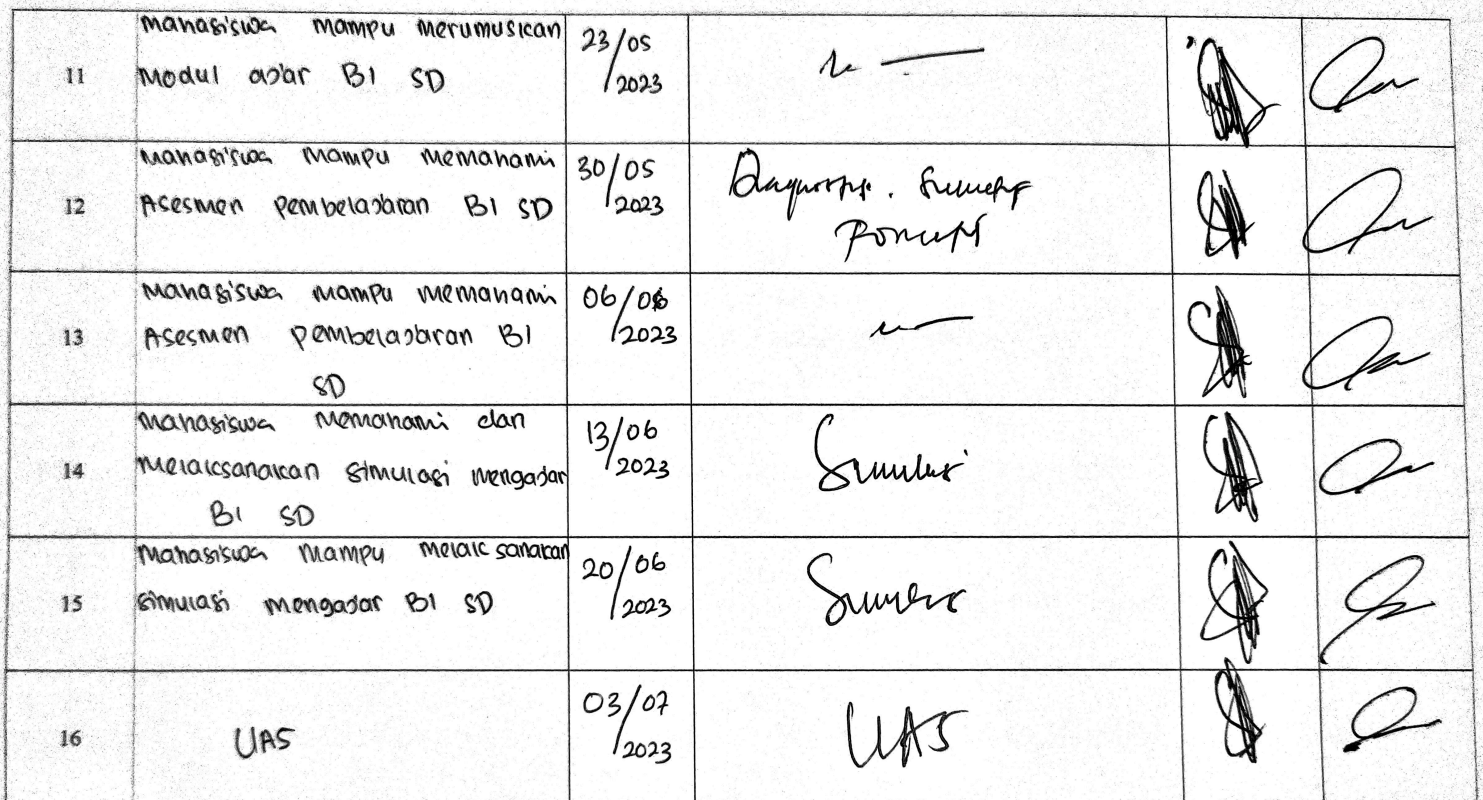 11
Mahasiswa Mampu Merumuskan
Modul ajar BI SD
23/05
2023
12
Mahasiswa Mampu Memahami
Asesmen Pembelajaran BI SD
30/05
2023
13
Mahasiswa Mampu Memahami
Asesmen Pembelajaran BI
SD
06/06
2023
14
Mahasiswa Memahami dan
Melaksanakan Simulasi Mengajar
BI SD
13/06
2023
Simulasi
15
Mahasiswa Mampu Melaksanakan
Simulasi Mengajar BI SD
20/06
2023
Simulasi
16
UAS
03/07
2023
UAS